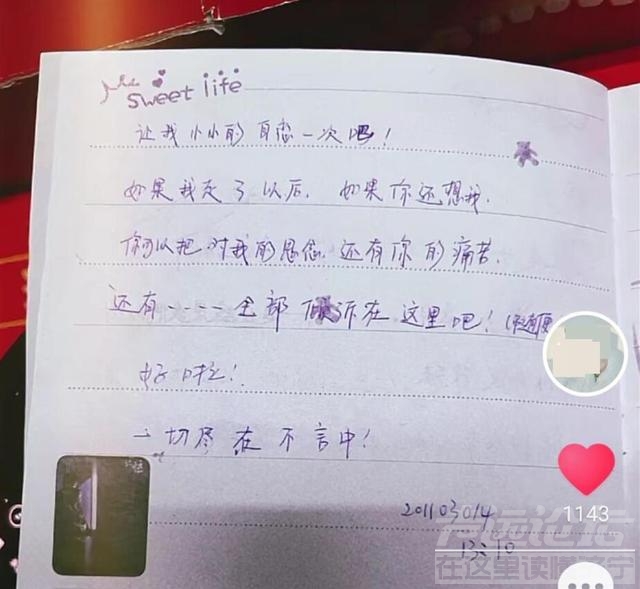 sweet life
让我小小的自恋一次吧!
如果我走了以后, 如果你还想我,
你可以把对我的思念, 还有你的痛苦,
还有---- 全部倾诉在这里吧!
好吗!
一切尽在不言中!
201103014
13:10
1143
在这里读懂济宁